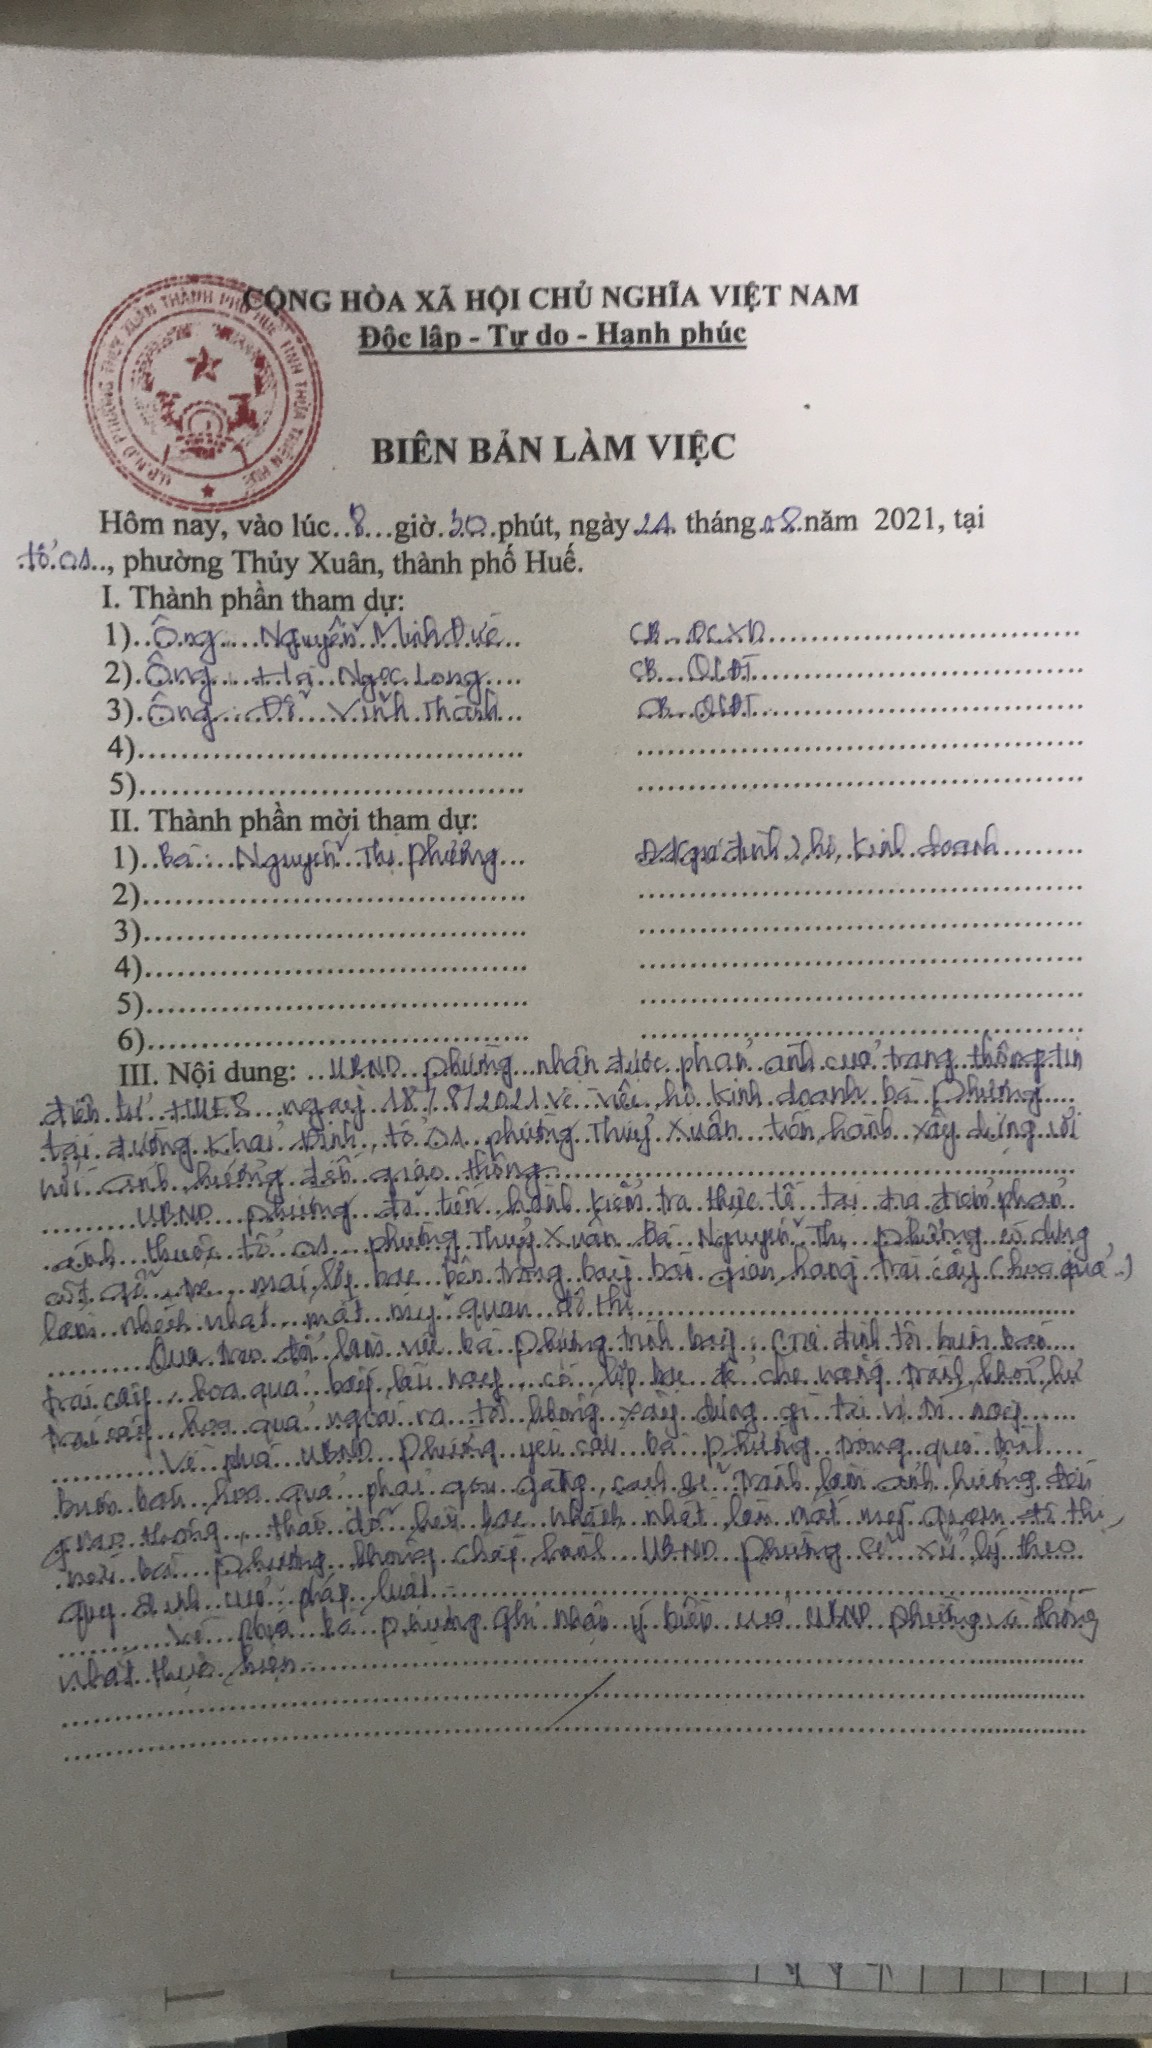 CỘNG HÒA XÃ HỘI CHỦ NGHĨA VIỆT NAM
Độc lập - Tự do - Hạnh phúc
U.B.N.D PHƯỜNG THỦY XUÂN THÀNH PHỐ HUẾ TỈNH THỪA THIÊN HUẾ
BIÊN BẢN LÀM VIỆC
Hôm nay, vào lúc 8 giờ 30 phút, ngày 24 tháng 08 năm 2021, tại
tổ 01, phường Thủy Xuân, thành phố Huế.
I. Thành phần tham dự:
1) Ông Nguyễn Minh Đức CB ĐCXD
2) Ông Hà Ngọc Long CB QLĐT
3) Ông Đỗ Vĩnh Thành CB QLĐT
4)
5)
II. Thành phần mời tham dự:
1) Bà: Nguyễn Thị Phương hộ kinh doanh
2)
3)
4)
5)
6)
III. Nội dung: UBND phường nhận được phản ánh của trang thông tin
điện tử HUES ngày 18/8/2021 về việc hộ kinh doanh bà Phương
tại đường Khải Định, tổ 01 phường Thuỷ Xuân tiến hành xây dựng
ảnh hưởng đến giao thông
UBND phường đã tiến hành kiểm tra thực tế tại địa điểm phản
ánh thuộc tổ 01 phường Thuỷ Xuân Bà Nguyễn Thị Phương có dựng
cột gỗ, mái lợp bạt bên trong bày bán gian hàng trái cây (hoa quả)
làm nhếch nhác, mất mỹ quan đô thị
Qua trao đổi làm việc bà Phương trình bày: Gia đình tôi buôn bán
trái cây, hoa quả bấy lâu nay, có lợp bạt để che nắng tránh khỏi hư
trái cây, hoa quả ngoài ra tôi không xây dựng gì tại vị trí này
Về phía UBND Phường yêu cầu bà Phương trong quá trình
buôn bán hoa quả phải gọn gàng, sạch sẽ tránh làm ảnh hưởng đến
giao thông, tháo dỡ bạt nhếch nhác làm mất mỹ quan đô thị,
nếu bà Phương không chấp hành UBND phường sẽ xử lý theo
quy định của pháp luật
Về phía bà Phương ghi nhận ý kiến của UBND phường và thống
nhất thực hiện